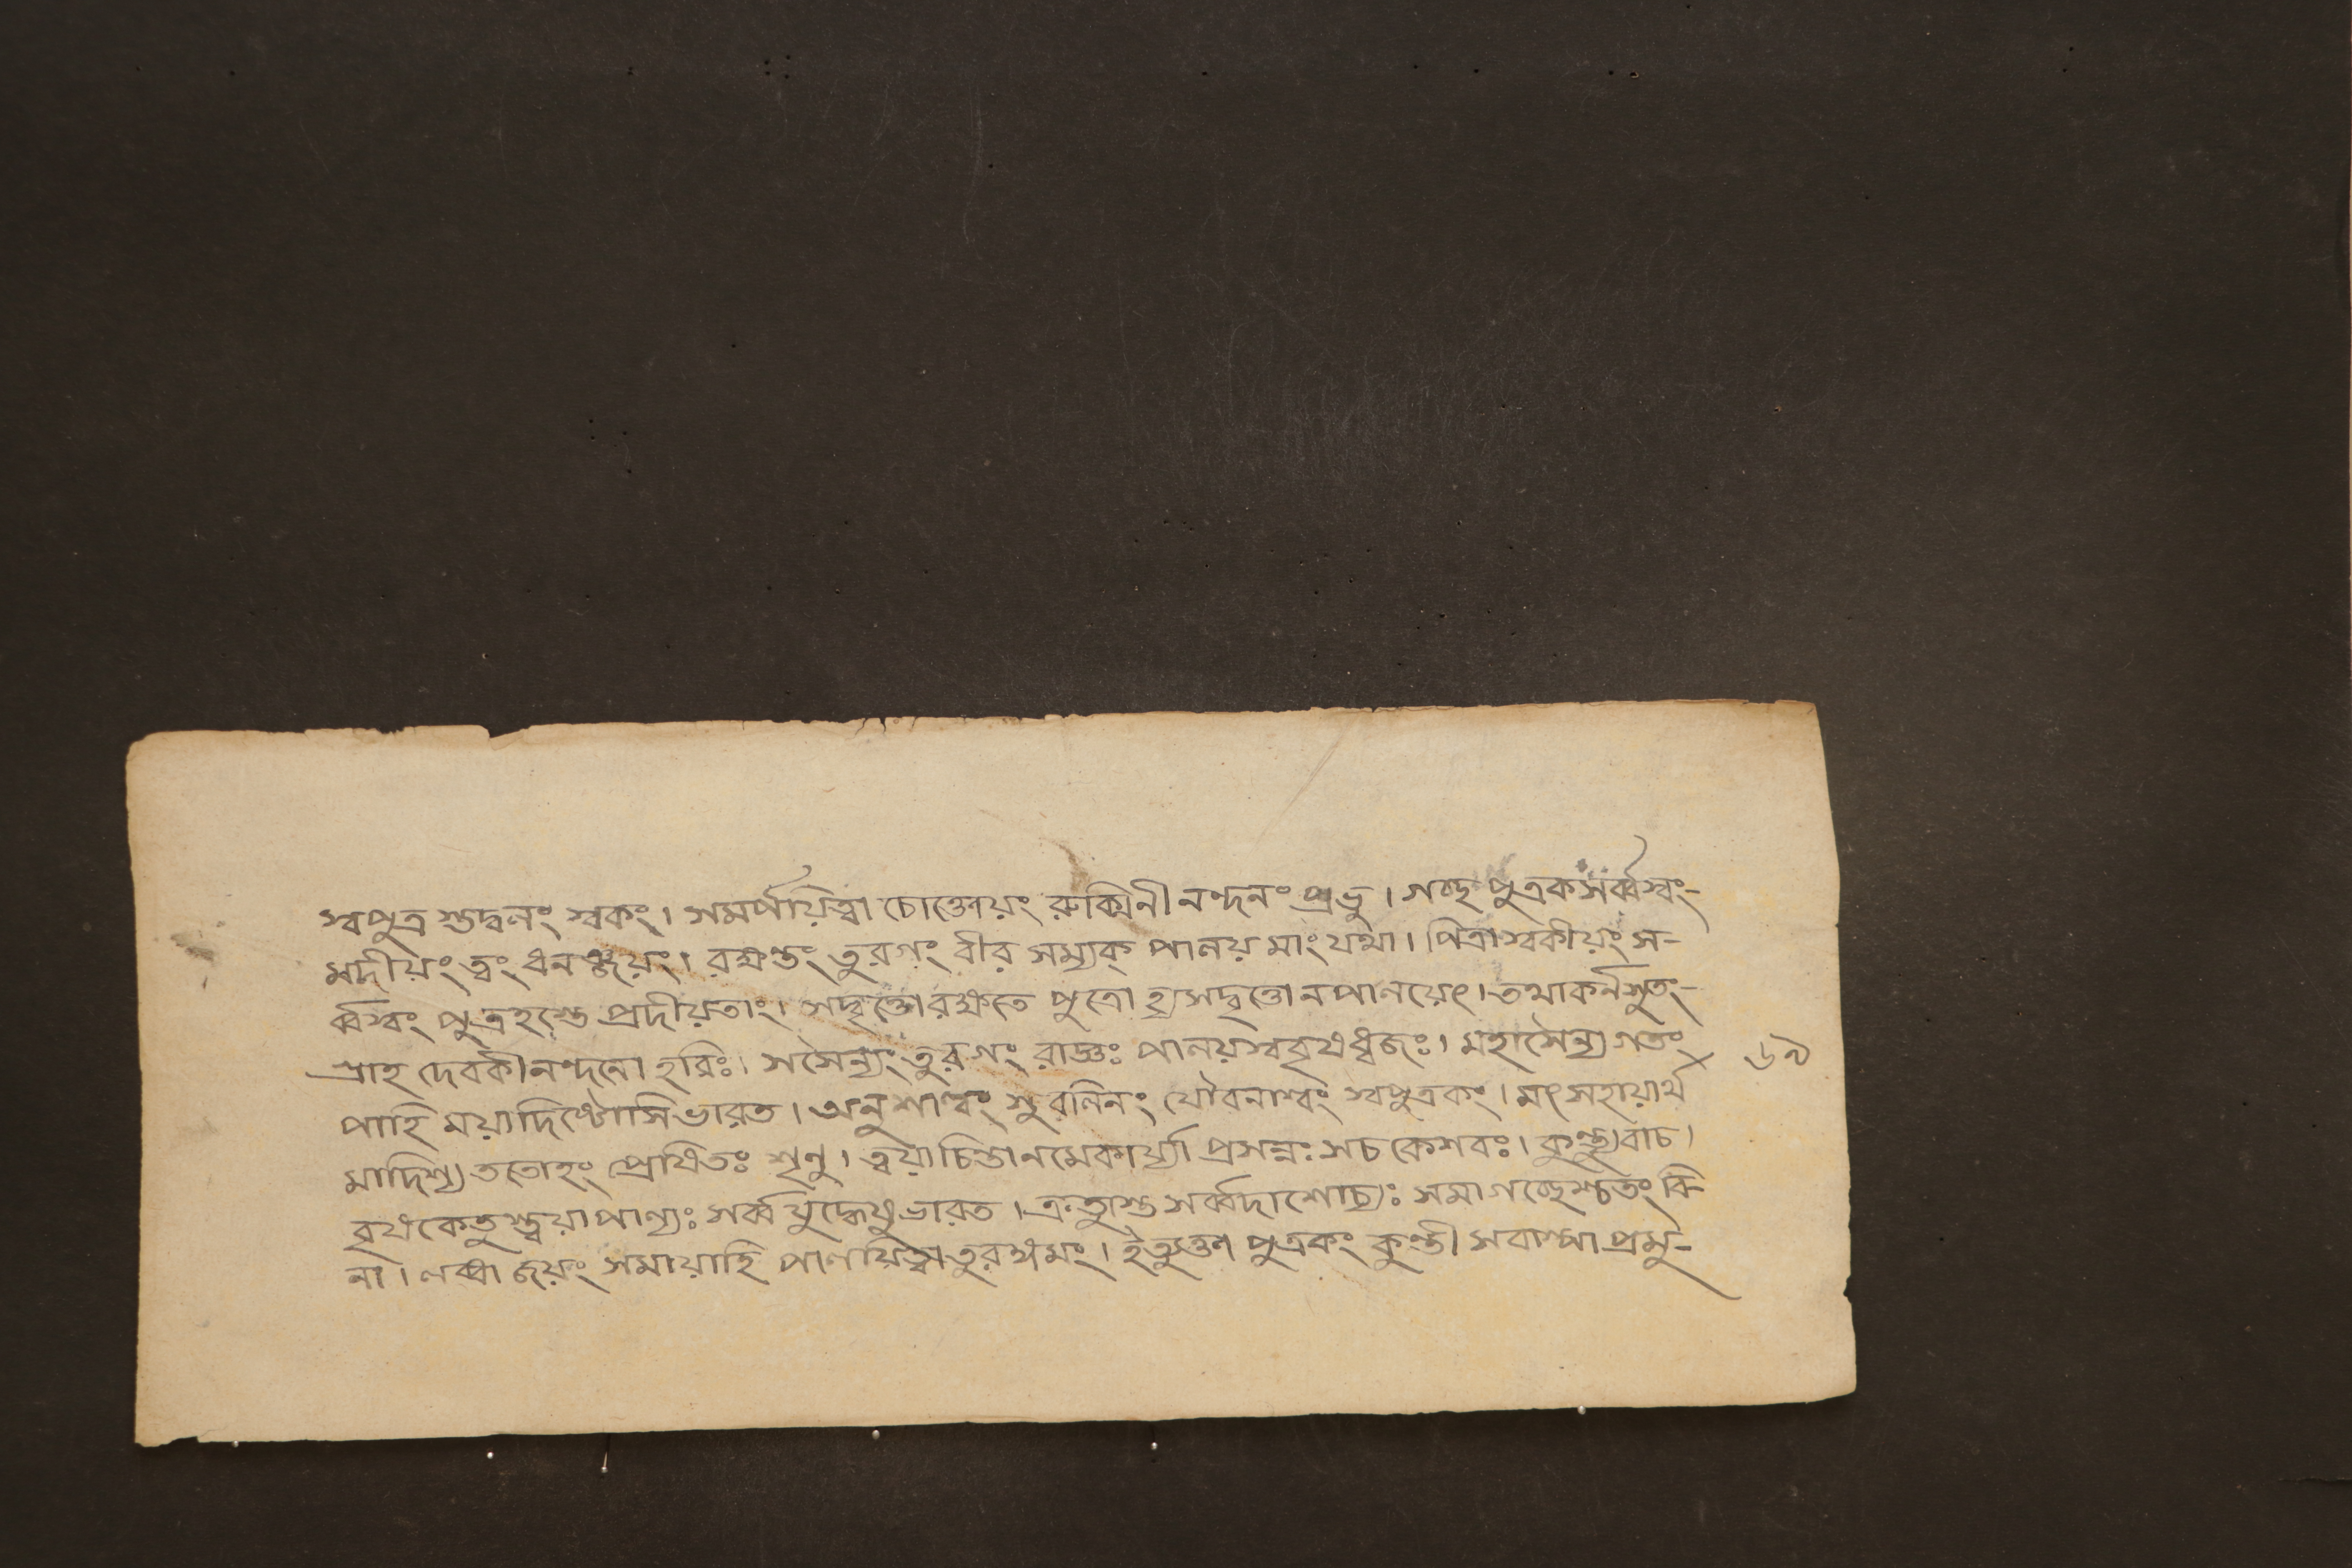 স্বপুত্র শুদ্বনং স্বকং। সমর্পয়িত্বা চোক্তোয়ং রুক্মিনীনন্দনং প্রভু। গচ্ছে পুত্রক সর্ব্বস্বং-
মদীয়ং ত্বং ধনঞ্জয়ং। রক্ষন্তং তুরগং বীর সম্যক্ পালয় মাং যথা। পিত্রাস্বকীয়ং স-
র্ব্বস্বং পুত্রহস্তে প্রদীয়তাং। সদ্বৃত্তোরক্ষতে পুত্রো হ্যসদ্বৃত্তো নপালয়েৎ। তথাকর্নসুতং-
প্রাহ দেবকীনন্দনো হরিঃ। সসৈন্যং তুরগং রাজ্ঞঃ পালয়স্ববৃষধ্বজঃ। মহাসৈন্য গতং
পাহি ময়াদিষ্টোসি ভারত। অনুশাল্বং সুবলিনং যৌবনাশ্বং স্বপুত্রকং। মৎসহায়ার্থ
মাদিশ্য ততোহং প্রেষিতঃ শৃনু। ত্বয়াচিন্তানমেকার্য্যা প্রসন্নঃ সচ কেশবঃ। কুন্ত্যুবাচ।
বৃষকেতুস্ত্বয়াপাল্যঃ সর্ব্বযুদ্ধেষু ভারত। সর্ব্বদাশোচ্যঃ সমাগচ্ছেশ্চতং বি-
না। লব্ধা জয়ং সমায়াহি পালয়িত্বা তুরঙ্গমং। ইত্যুক্তা পুত্রকং কুন্তী সবাষ্পা প্রমু-
৬৯